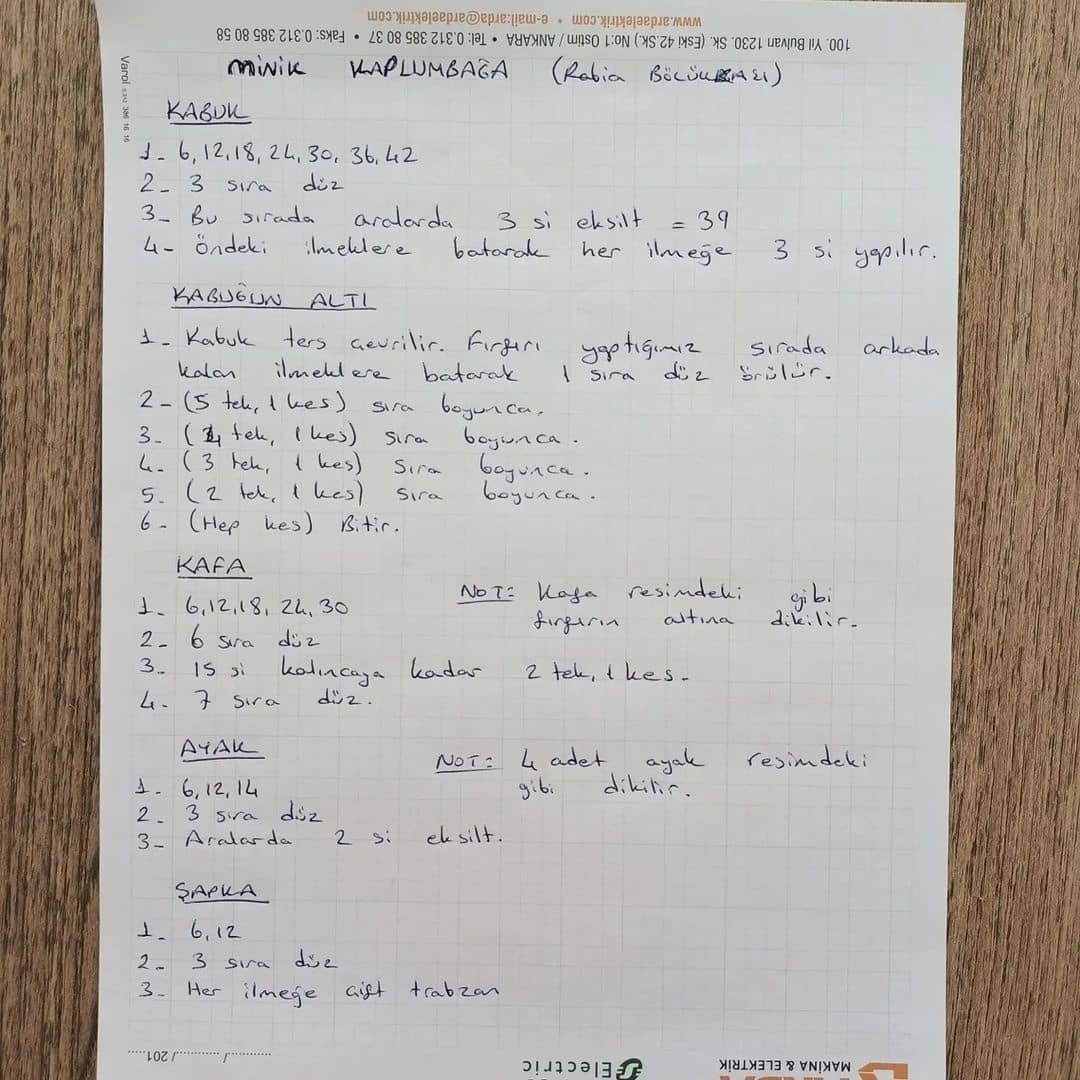 www.ardaelektrik.com • e-mail:arda@ardaelektrik.com
100. Yıl Bulvarı 1230. Sk. (Eski 42.Sk.) No:1 Ostim / ANKARA • Tel: 0.312 385 80 37 • Faks: 0.312 385 80 58
Varol 0.312 386 16 16
MİNİK KAPLUMBAĞA (Rabia
KABUK
1- 6,12,18, 24, 30, 36, 42
2- 3 sıra düz
3- Bu sırada aralarda 3 si eksilt = 39
4- Öndeki ilmeklere batarak her ilmeğe 3 si yapılır.
KABUĞUN ALTI
1- Kabuk ters çevrilir. Fırfırı yaptığımız sırada arkada
kalan ilmeklere batarak 1 sıra düz örülür.
2- (5 tek, 1 kes) sıra boyunca.
3- (4 tek, 1 kes) sıra boyunca.
4- (3 tek, 1 kes) sıra boyunca.
5- (2 tek, 1 kes) sıra boyunca.
6- (Hep kes) Bitir.
KAFA
1- 6,12,18, 24, 30
2- 6 sıra düz
3- 15 si kalıncaya kadar 2 tek, 1 kes.
4- 7 sıra düz.
NOT: Kafa resimdeki gibi
fırfırın altına dikilir.
AYAK
1- 6, 12, 14
2- 3 sıra düz
3- Aralarda 2 si eksilt.
NOT: 4 adet ayak resimdeki
gibi dikilir.
ŞAPKA
1- 6,12
2- 3 sıra düz
3- Her ilmeğe çift trabzan
............/ ............/ 201.....
Electric
MAKİNA & ELEKTRİK